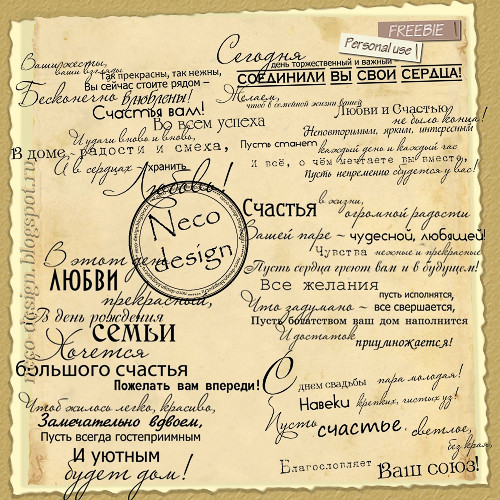 FREEBIE
Personal use
Ваши жесты,
ваши взгляды
Так прекрасны, так нежны,
Вы сейчас стоите рядом –
Бесконечно влюблены!
Счастья вам!
Во всем успеха
И удачи вновь и вновь,
В доме - радости и смеха,
А в сердцах - хранить
Любовь!
Сегодня
день торжественный и важный
СОЕДИНИЛИ ВЫ СВОИ СЕРДЦА!
Желаем,
чтоб в семейной жизни вашей
Любви и Счастью
не было конца!
Неповторимым, ярким, интересным
Пусть станет каждый день и каждый час
И всё, о чём мечтаете вы вместе,
Пусть непременно сбудется у вас!
Neco
design
Счастья в жизни,
огромной радости
Вашей паре – чудесной, любящей!
Чувства нежные и прекрасные
Пусть сердца греют вам и в будущем!
Все желания
пусть исполнятся,
Что задумано – все свершается,
Пусть богатством ваш дом наполнится
И достаток
приумножается!
В этот день
ЛЮБВИ
прекрасный,
В день рождения
семьи
Хочется
большого счастья
Пожелать вам впереди!
Чтоб жилось легко, красиво,
Замечательно вдвоем,
Пусть всегда гостеприимным
И уютным
будет дом!
С днем свадьбы пара молодая!
Навеки крепких, чистых уз!
Пусть счастье, светлое,
без края,
Благословляет
Ваш союз!
neco-design.blogspot.ru